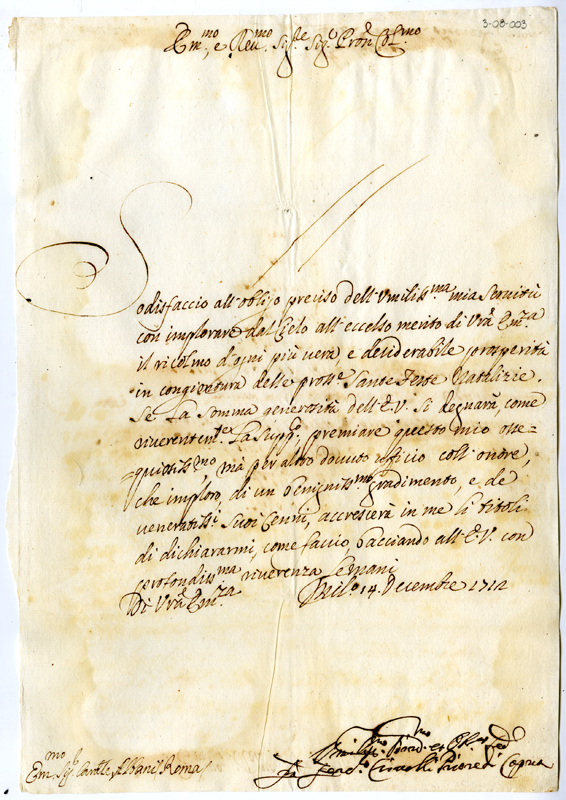 3-08-003
Em.mo, e Reu.mo Sig.re Sig.r Pron Col.mo
Sodisfaccio all'obligo preciso dell'Vmiliss.ma mia Seruitù
con implorare dal Cielo all'eccelso merito di Vrã Em.za
il ricolmo d'ogni più vera, e desiderabile prosperità
in congiontura delle pross.e Sante Feste Natalizie.
Se la somma generosità dell'E.V. si degnarà, come
riuerentem.te la supp.co, premiare questo mio osse=
=quiosiss.mo, mà per altro douuto ufficio coll'onore,
che imploro, di un benigniss.mo gradimento, e de
veneratiss.i Suoi Cenni, accrescerà in me li titoli
di dichiararmi, come faccio, bacciando all'E.V. con
profondiss.ma riuerenza le mani
Di Vrã Em.za 14. Decembre 1712
Em.mo Sig.r Card.le Albani Roma
Vmiliss.mo
Fr. Ciraolli Priore di Capua